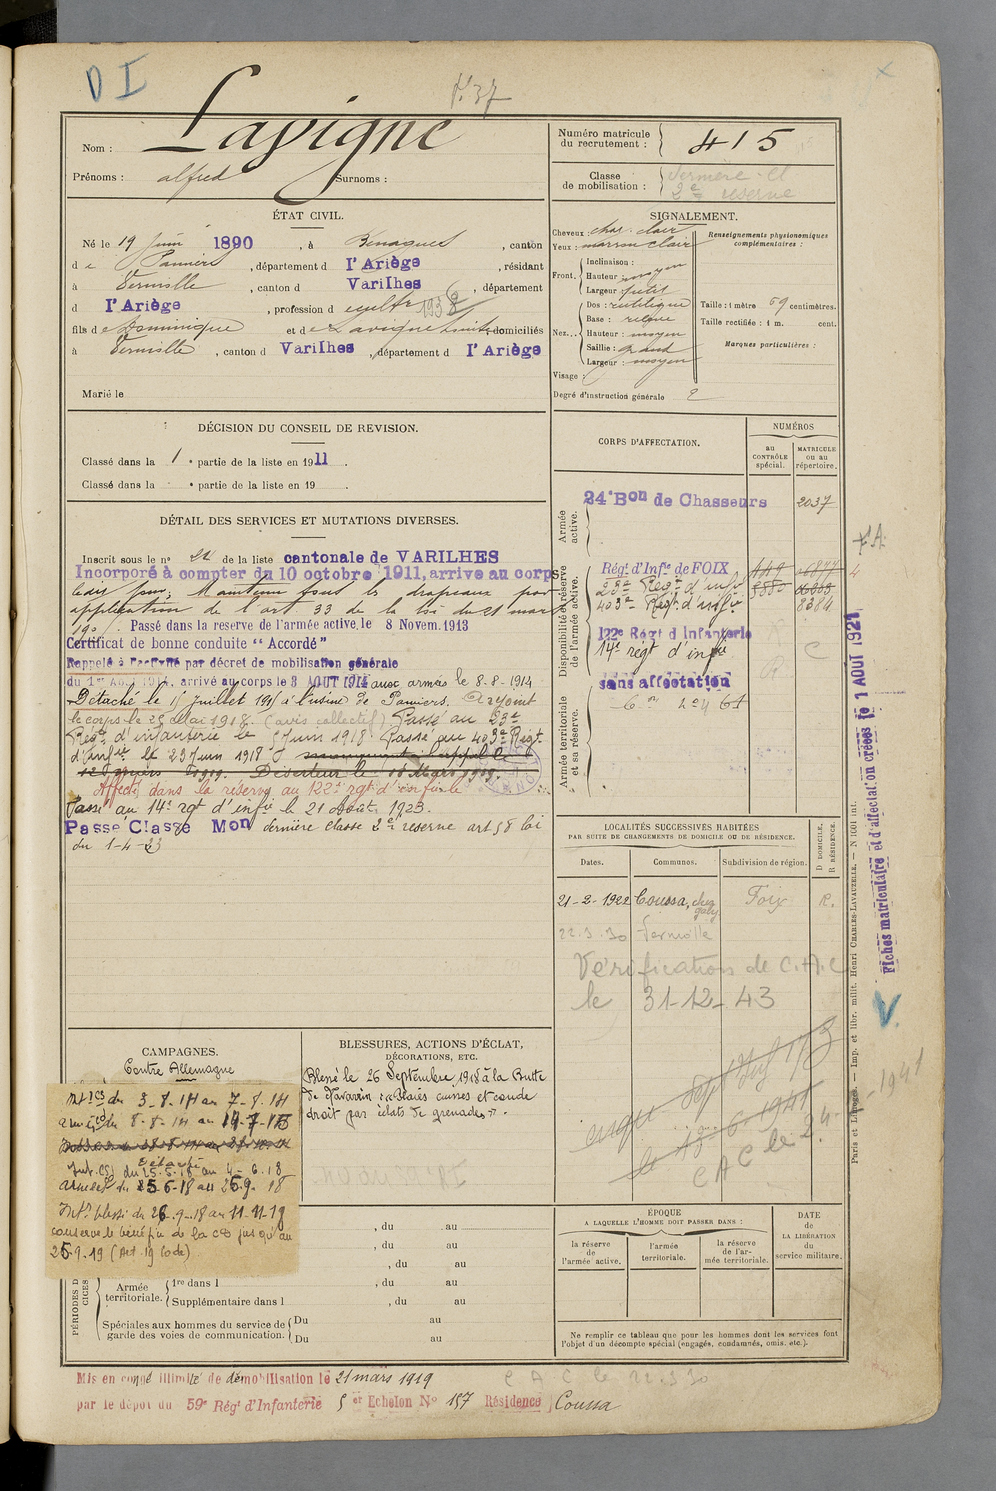 D I
P. 37
Nom : Lavigne
Prénoms : alfred Surnoms :
Numéro matricule du recrutement : 415
Classe de mobilisation : dernière Cl
2e reserve
ÉTAT CIVIL.
Né le 19 juin 1890, à Benagues, canton
de Pamiers, département d l'Ariège, résidant
à Verniolle, canton d Varilhes, département
d l'Ariège, profession d cultr
fils de Dominique et de Lavigne domiciliés
à Verniolle, canton d Varilhes, département d l'Ariège
Marié le
SIGNALEMENT.
Cheveux : chat. clair
Yeux : marron clair
Front. Inclinaison :
Hauteur : moyen
Largeur : petit
Nez. Dos : rectiligne
Base : relevé
Hauteur : moyen
Saillie : grand
Largeur : moyen
Visage :
Renseignements physionomiques complémentaires :
Taille : 1 mètre 69 centimètres.
Taille rectifiée : 1 m. cent.
Marques particulières :
Degré d'instruction générale 2
DÉCISION DU CONSEIL DE REVISION.
Classé dans la 1e partie de la liste en 1911.
Classé dans la e partie de la liste en 19 .
DÉTAIL DES SERVICES ET MUTATIONS DIVERSES.
Inscrit sous le n° 22 de la liste cantonale de VARILHES
Incorporé à compter du 10 octobre 1911, arrive au corps
ledit jour, Maintenu sous les drapeaux par
application de l'art 33 de la loi du 21 mars
190 . Passé dans la reserve de l'armée active, le 8 Novem. 1913
Certificat de bonne conduite "Accordé"
Rappelé à l'activité par décret de mobilisation générale
du 1er Aout 1914, arrivé au corps le 3 AOUT 1914 aux armées le 8-8-1914
Détaché le 15 juillet 1915 à l'usine de Pamiers. Rejoint
le corps le 25 Mai 1918. (avis collectif) Passé au 23e
Regt d'infanterie le 5 Juin 1918 Passé au 403e Regt.
d'Infie le 23 Juin 1918
Déserteur le 16 Mars 1919.
Affecté dans la réserve au 122e rgt d'infie le
Passé au 14e rgt d'infie le 21 Août 1923.
Passé Classe Mon dernière classe 2e reserve art 58 loi
du 1-4-23
CORPS D'AFFECTATION.
NUMÉROS
au CONTRÔLE spécial.
MATRICULE ou au répertoire.
Armée active.
24e Bon de Chasseurs 2037
Disponibilité et réserve de l'armée active.
Régt d'Infie de FOIX 449
23e Regt d'infie
403e Regt d'infie 8384
122e Régt d Infanterie
14e regt d'infie
sans affectation
Armée territoriale et sa réserve.
F.A.
Fiches matriculaire et d'affectation créées le 1 AOUT 1921
LOCALITÉS SUCCESSIVES HABITÉES
PAR SUITE DE CHANGEMENTS DE DOMICILE OU DE RÉSIDENCE.
Dates. Communes. Subdivision de région. D DOMICILE, R RÉSIDENCE.
21-2-1922 Coussa, Foix R.
22.3.30 Verniolle
Vérification de C.A.C
le 31-12-43
C A C le 24-
-1941
V.
Paris et Limoges. — Imp. et libr. milit. Henri CHARLES-LAVAUZELLE. — N° 1001 int.
CAMPAGNES.
Contre Allemagne
Intre CS du 3-8-14 au 7-8-14
armées du 8-8-14 au 14-7-15
Intr. CS du 25.5.18 au 4-6-18
armées du 5-6-18 au 25.9.18
Intr blessé du 26-9-18 au 11-11-19
conserve le bénéfice de la CD jusqu'au
25.9.19 (Art 19 Code)
BLESSURES, ACTIONS D'ÉCLAT, DÉCORATIONS, ETC.
Blessé le 26 Septembre 1918 à la Butte
de Tavarin "Plaies cuisses et coude
droit par éclats de grenades".
, du au
, du au
, du au
Armée territoriale. 1re dans l , du au
Supplémentaire dans l , du au
Spéciales aux hommes du service de garde des voies de communication. Du au
Du au
ÉPOQUE
A LAQUELLE L'HOMME DOIT PASSER DANS :
la réserve de l'armée active.
l'armée territoriale.
la réserve de l'armée territoriale.
DATE de LA LIBÉRATION du service militaire.
Ne remplir ce tableau que pour les hommes dont les services font l'objet d'un décompte spécial (engagés, condamnés, omis, etc.).
Mis en congé illimité de démobilisation le 21 mars 1919
C A C le 22.3.30
par le dépot du 59e Régt d'Infanterie 5 er Echelon N° 157 Résidence Coussa